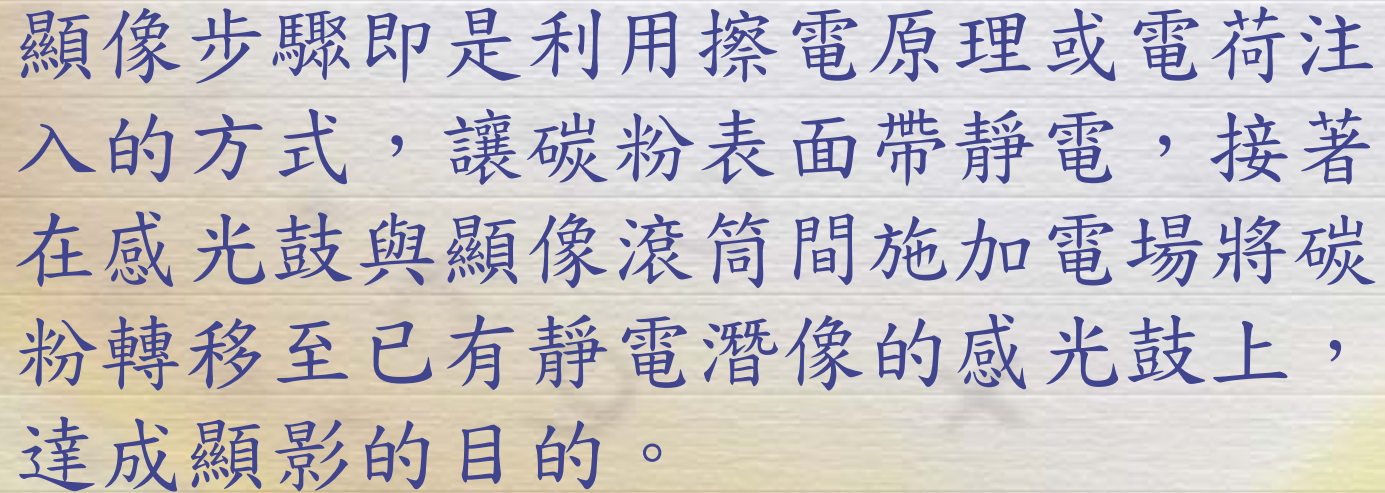 顯像步驟即是利用擦電原理或電荷注
入的方式，讓碳粉表面帶靜電，接著
在感光鼓與顯像滾筒間施加電場將碳
粉轉移至已有靜電潛像的感光鼓上，
達成顯影的目的。